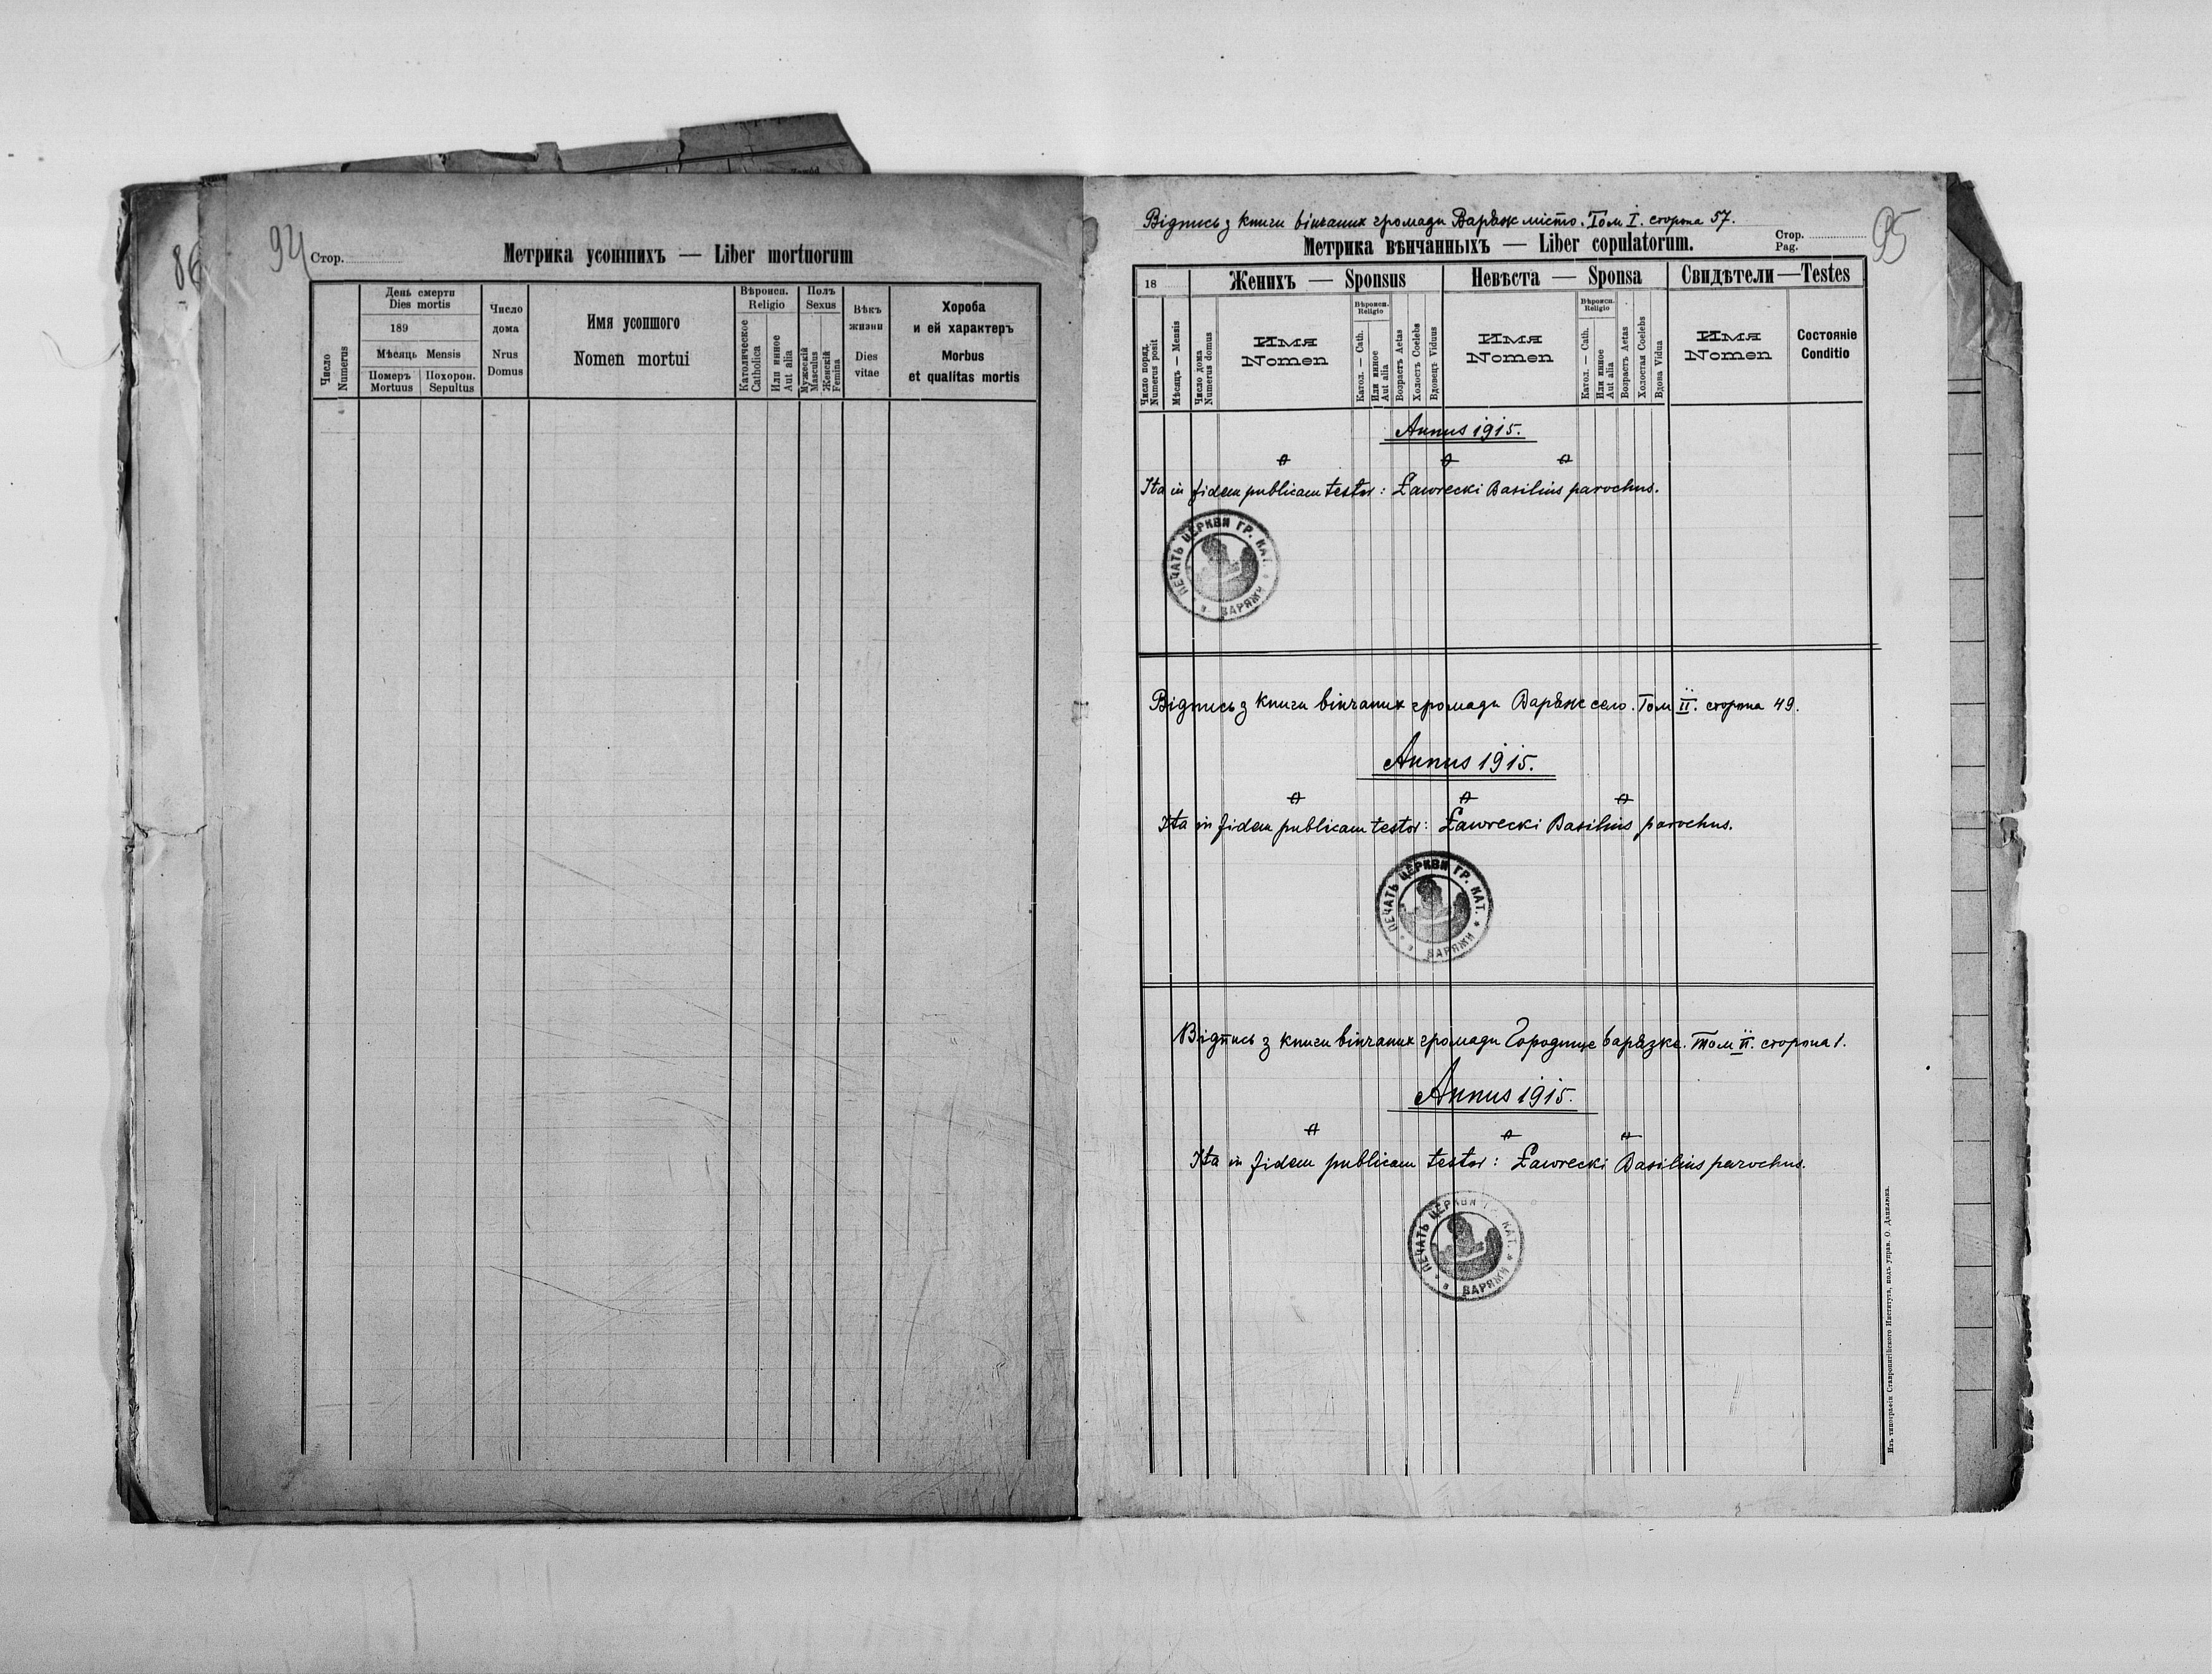 86
94
Стор.
Метрика усопшихъ — Liber mortuorum
Число
Numerus
День смерти
Dies mortis
189
Мѣсяць Mensis
Померъ
Mortuus
Похорон.
Sepultus
Число
дома
Nrus
Domus
Имя усопшого
Nomen mortui
Вѣроисп.
Religio
Католическое
Catholica
Или инное
Aut alia
Полъ
Sexus
Мужескій
Masculus
Женскій
Femina
Вѣкъ
жизни
Dies
vitae
Хороба
и ей характеръ
Morbus
et qualitas mortis
Відпись з книги вінчаних громади Варяж місто. Том I. сторона 57.
Метрика вѣнчанныхъ — Liber copulatorum.
Стор.
Pag.
95
18
Женихъ — Sponsus
Невѣста — Sponsa
Свидѣтели — Testes
Число поряд.
Numerus posit
Мѣсяць — Mensis
Число дома
Numerus domus
Имя
Nomen
Вѣроисп.
Religio
Катол. — Cath.
Или инное
Aut alia
Возрасть Aetas
Холость Coelebs
Вдовець Viduus
Имя
Nomen
Вѣроисп.
Religio
Катол. — Cath.
Или инное
Aut alia
Возрасть Aetas
Холостая Coelebs
Вдова Vidua
Имя
Nomen
Состояніе
Conditio
Annus 1915.
Ita in fidem publicam testor: Ławrecki Basilius parochus.
ПЕЧАТЬ ЦЕРКВИ ГР. КАТ. * в ВАРЯЖИ *
Відпись з книги вінчаних громади Варяж село. Том II. сторона 49.
Annus 1915.
Ita in fidem publicam testor: Ławrecki Basilius parochus.
ПЕЧАТЬ ЦЕРКВИ ГР. КАТ. * в ВАРЯЖИ *
Відпись з книги вінчаних громади Городище варязке. Том II. сторона 1.
Annus 1915.
Ita in fidem publicam testor: Ławrecki Basilius parochus.
ПЕЧАТЬ ЦЕРКВИ ГР. КАТ. * в ВАРЯЖИ *
Изъ типографіи Ставропигійского Института, подъ управ. О. Данилюка.